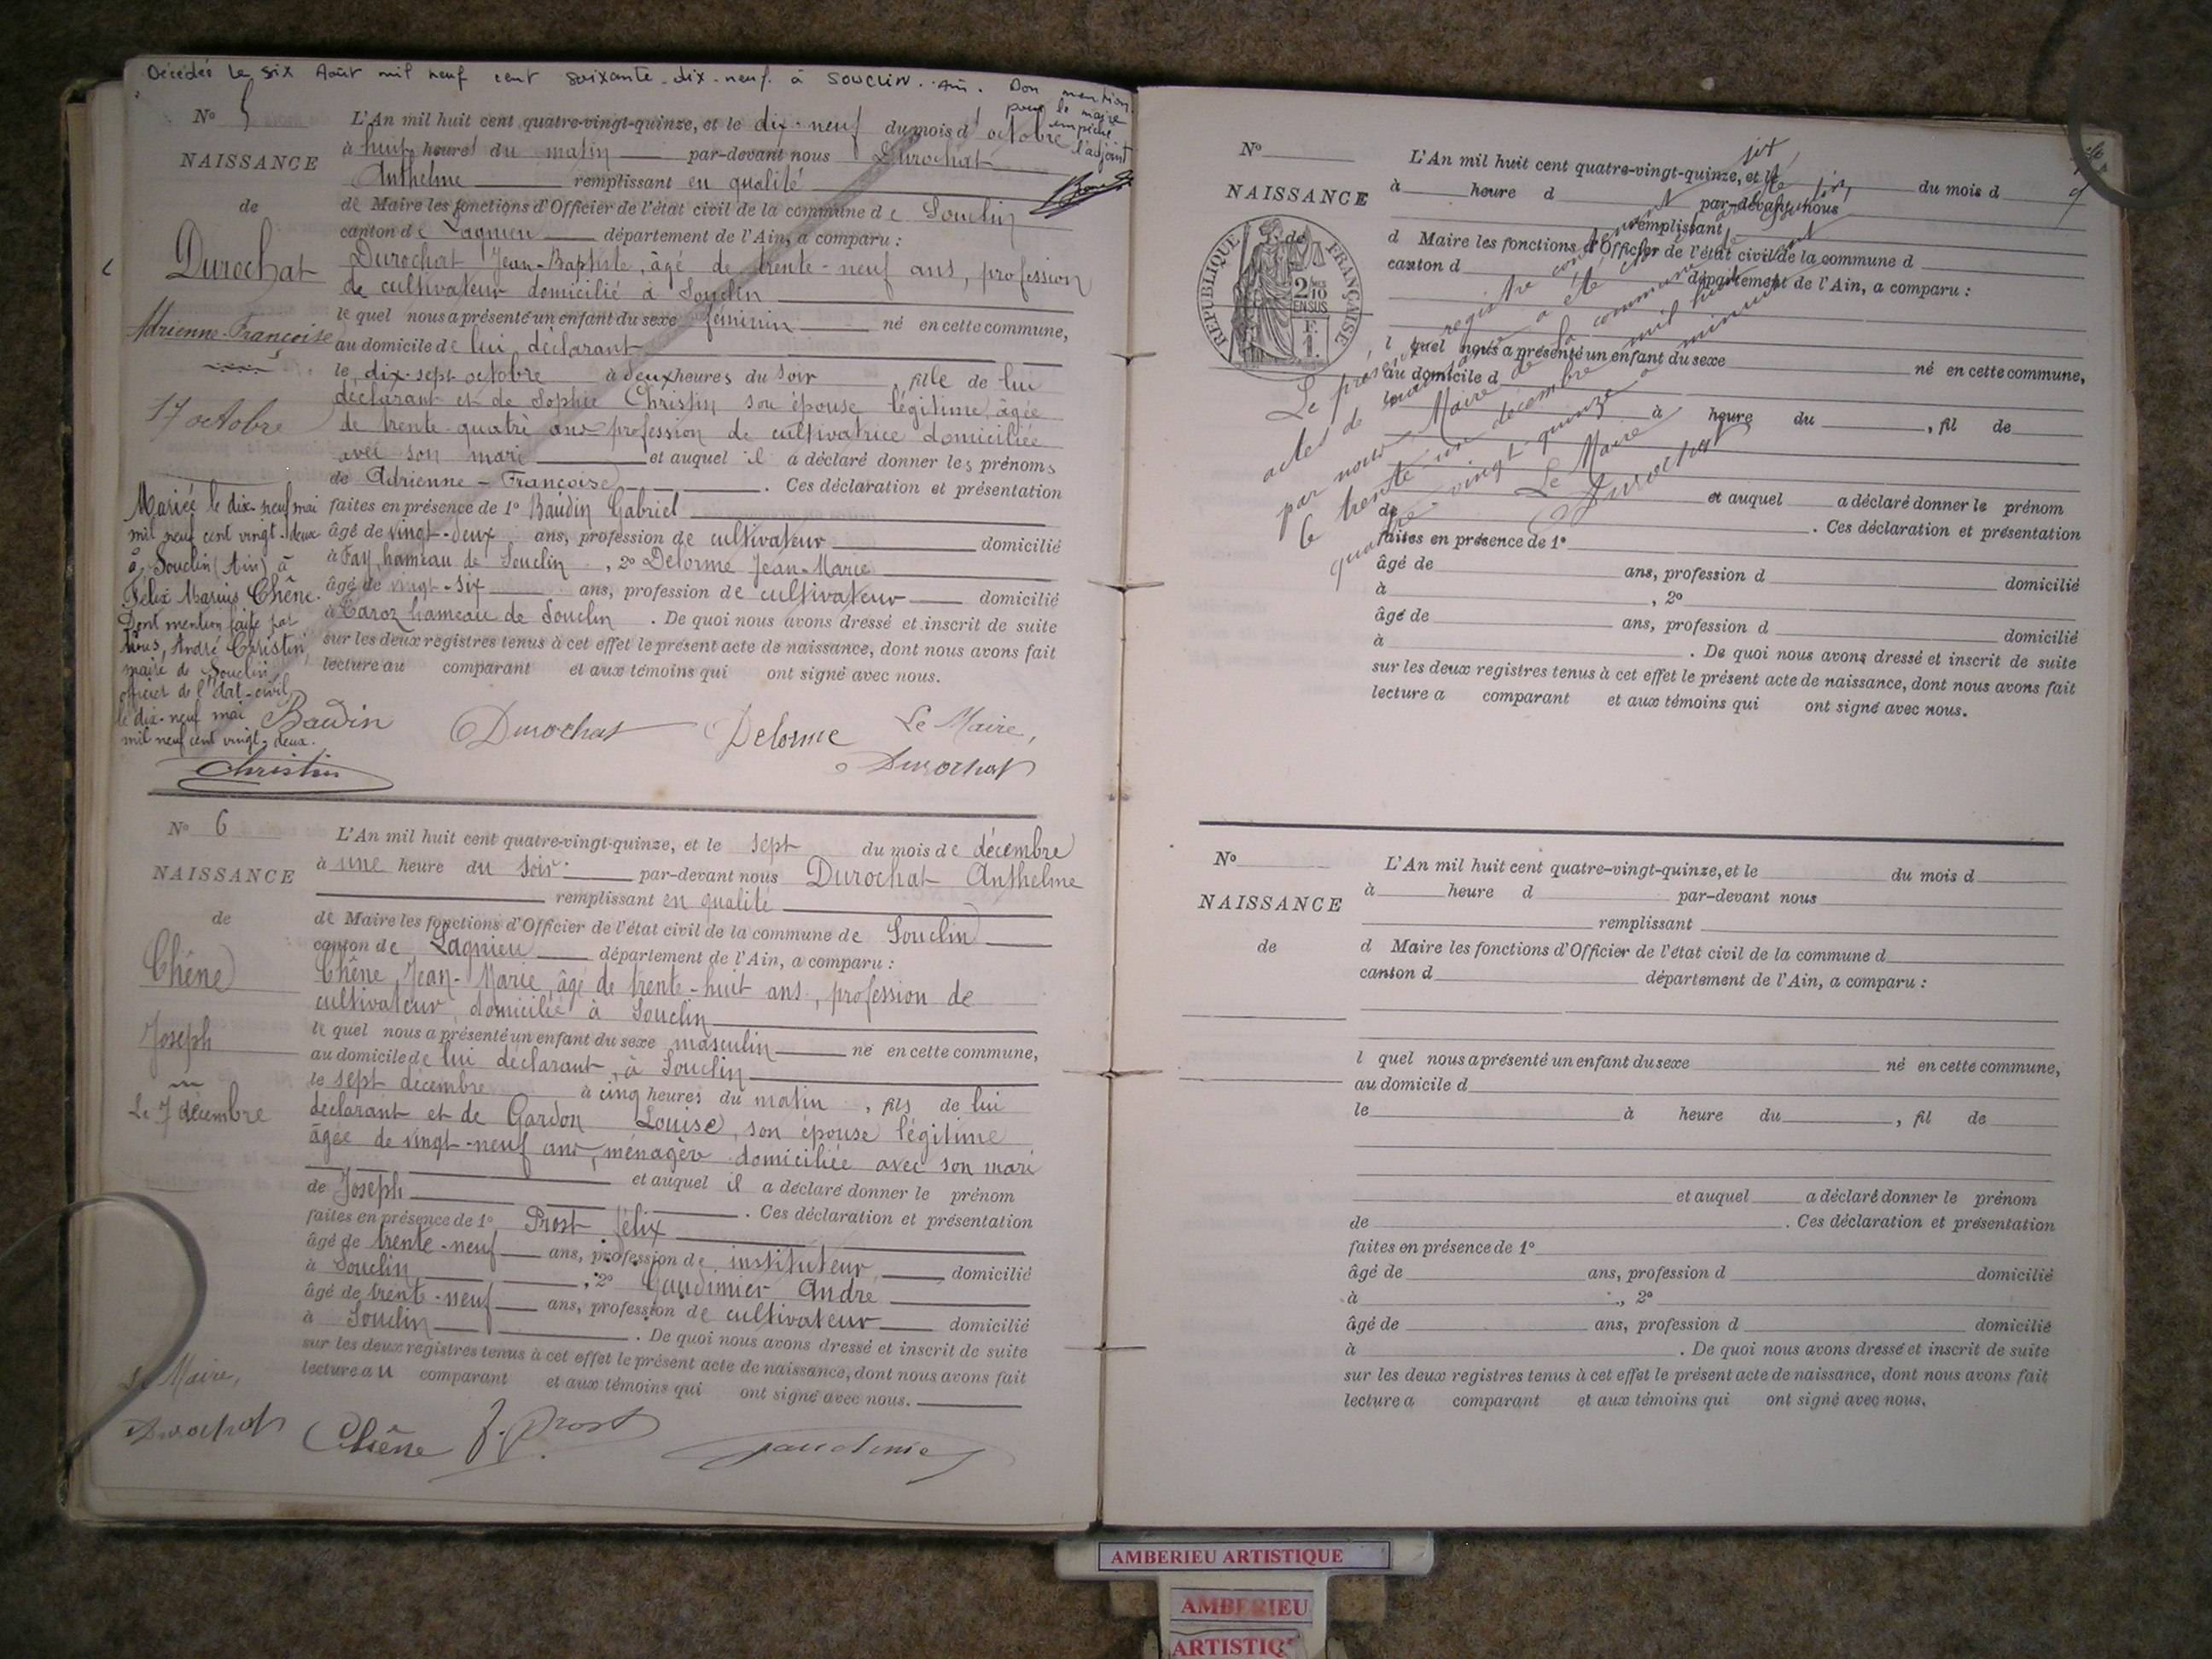 Décédée le six Août mil neuf cent soixante-dix-neuf à SOUCLIN. Ain. Don mention
pour le maire
empêché
l'adjoint
N° 5
NAISSANCE
de
Durochat
Adrienne-Françoise
17 octobre
L'An mil huit cent quatre-vingt-quinze, et le dix-neuf du mois d'octobre
à huit heures du matin par-devant nous Durochat
Anthelme remplissant en qualité
de Maire les fonctions d'Officier de l'état civil de la commune de Souclin
canton de Lagnieu département de l'Ain, a comparu :
Durochat Jean-Baptiste, âgé de trente-neuf ans, profession
de cultivateur domicilié à Souclin
le quel nous a présenté un enfant du sexe féminin né en cette commune,
au domicile de lui déclarant
le dix-sept octobre à deux heures du soir, fille de lui
déclarant et de Sophie Christin son épouse légitime, âgée
de trente-quatre ans profession de cultivatrice domiciliée
avec son mari et auquel il a déclaré donner les prénoms
de Adrienne-Françoise. Ces déclaration et présentation
faites en présence de 1° Baudin Gabriel
âgé de vingt-deux ans, profession de cultivateur domicilié
à Fay, hameau de Souclin, 2° Delorme Jean-Marie
âgé de vingt-six ans, profession de cultivateur domicilié
à Caroz hameau de Souclin. De quoi nous avons dressé et inscrit de suite
sur les deux registres tenus à cet effet le présent acte de naissance, dont nous avons fait
lecture au comparant et aux témoins qui ont signé avec nous.
Mariée le dix-neuf mai
mil neuf cent vingt-deux
à Souclin (Ain) à
Félix Marius Chêne.
Dont mention faite par
Nous, André Christin
maire de Souclin
officier de l'état-civil,
le dix-neuf mai
mil neuf cent vingt-deux.
Christin
Baudin Durochat Delorme Le Maire,
Durochat
N° 6
NAISSANCE
de
Chêne
Joseph
Le 7 décembre
L'An mil huit cent quatre-vingt-quinze, et le sept du mois de décembre
à une heure du soir par-devant nous Durochat Anthelme
remplissant en qualité
de Maire les fonctions d'Officier de l'état civil de la commune de Souclin
canton de Lagnieu département de l'Ain, a comparu :
Chêne Jean-Marie, âgé de trente-huit ans, profession de
cultivateur, domicilié à Souclin
le quel nous a présenté un enfant du sexe masculin né en cette commune,
au domicile de lui déclarant, à Souclin
le sept décembre à cinq heures du matin, fils de lui
déclarant et de Gardon Louise, son épouse légitime
âgée de vingt-neuf ans, ménagère domiciliée avec son mari
et auquel il a déclaré donner le prénom
de Joseph. Ces déclaration et présentation
faites en présence de 1° Prost Félix
âgé de trente-neuf ans, profession de instituteur, domicilié
à Souclin, 2° Gaudimier André
âgé de trente-neuf ans, profession de cultivateur domicilié
à Souclin. De quoi nous avons dressé et inscrit de suite
sur les deux registres tenus à cet effet le présent acte de naissance, dont nous avons fait
lecture au comparant et aux témoins qui ont signé avec nous.
Le Maire,
Durochat Chêne F. Prost Gaudimier
N°
NAISSANCE
de
RÉPUBLIQUE FRANÇAISE
2/10 EN SUS
F. 1.
L'An mil huit cent quatre-vingt-quinze, et le du mois d
à heure d par-devant nous
remplissant
d Maire les fonctions d'Officier de l'état civil de la commune d
canton d département de l'Ain, a comparu :
l quel nous a présenté un enfant du sexe né en cette commune,
au domicile d
à heure du, fil de
et auquel a déclaré donner le prénom
de. Ces déclaration et présentation
faites en présence de 1°
âgé de ans, profession d domicilié
à, 2°
âgé de ans, profession d domicilié
à. De quoi nous avons dressé et inscrit de suite
sur les deux registres tenus à cet effet le présent acte de naissance, dont nous avons fait
lecture a comparant et aux témoins qui ont signé avec nous.
Le présent registre contenant six
actes de a été
par nous Maire de la commune
le trente-un décembre mil huit cent
quatre-vingt-quinze à minuit
Le Maire
Durochat
N°
NAISSANCE
de
L'An mil huit cent quatre-vingt-quinze, et le du mois d
à heure d par-devant nous
remplissant
d Maire les fonctions d'Officier de l'état civil de la commune d
canton d département de l'Ain, a comparu :
l quel nous a présenté un enfant du sexe né en cette commune,
au domicile d
le à heure du, fil de
et auquel a déclaré donner le prénom
de. Ces déclaration et présentation
faites en présence de 1°
âgé de ans, profession d domicilié
à, 2°
âgé de ans, profession d domicilié
à. De quoi nous avons dressé et inscrit de suite
sur les deux registres tenus à cet effet le présent acte de naissance, dont nous avons fait
lecture a comparant et aux témoins qui ont signé avec nous.
AMBERIEU ARTISTIQUE
AMBERIEU
ARTISTIQ